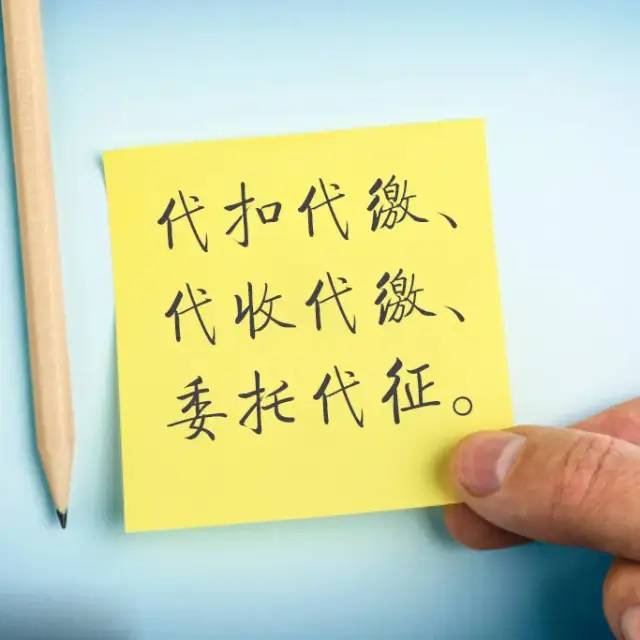 代扣代缴、
代收代缴、
委托代征。